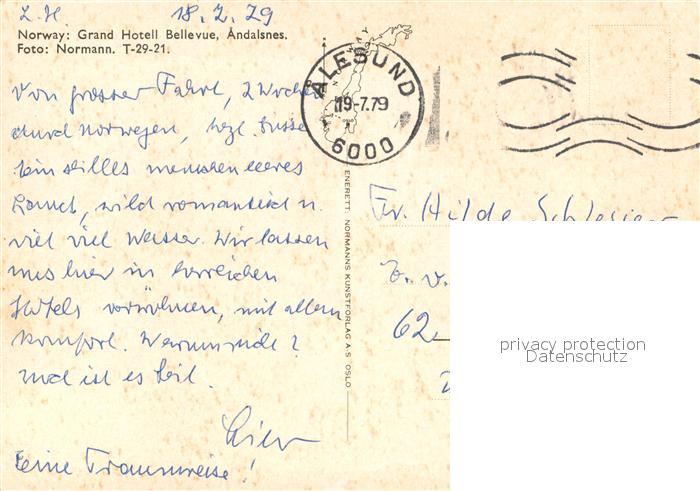 L.H. 18.7.79
Norway: Grand Hotell Bellevue, Åndalsnes.
Foto: Normann. T-29-21.
Von grosser Fahrt, 2 Wochen
durch Norwegen, herzl. Grüsse
Ein stilles menschenleeres
Land, wild romantisch u.
viel viel Wasser. Wir lassen
uns hier in herrlichen
Hotels verwöhnen, mit allem
Komfort. Warum nicht?
und ist es Teil.
Eine Traumreise!
ÅLESUND
19-7.79
6000
ENERETT: NORMANNS KUNSTFORLAG A·S OSLO
Fr. Hilde
Z. v.
62
privacy protection
Datenschutz